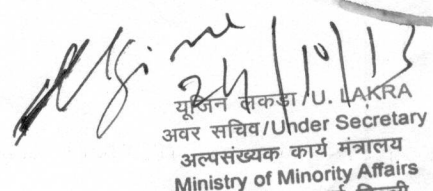 24/10/13
यूजिन लकड़ा/U. LAKRA
अवर सचिव/Under Secretary
अल्पसंख्यक कार्य मंत्रालय
Ministry of Minority Affairs